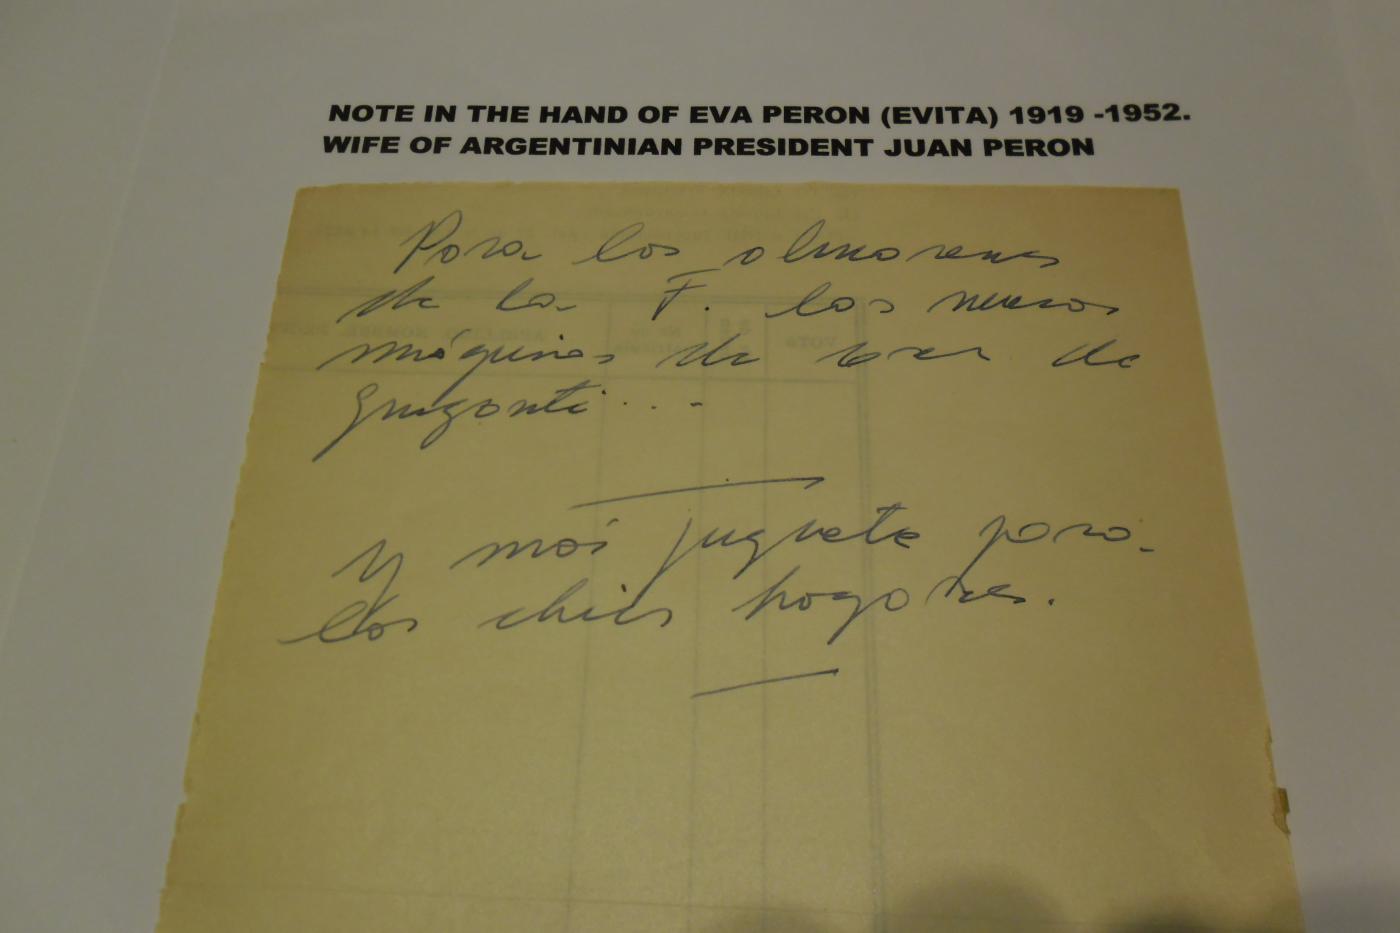 NOTE IN THE HAND OF EVA PERON (EVITA) 1919 -1952.
WIFE OF ARGENTINIAN PRESIDENT JUAN PERON
Para los almacenes
de la F. las nuevas
máquinas de coser de
Y más juguete para
los chicos hogares.